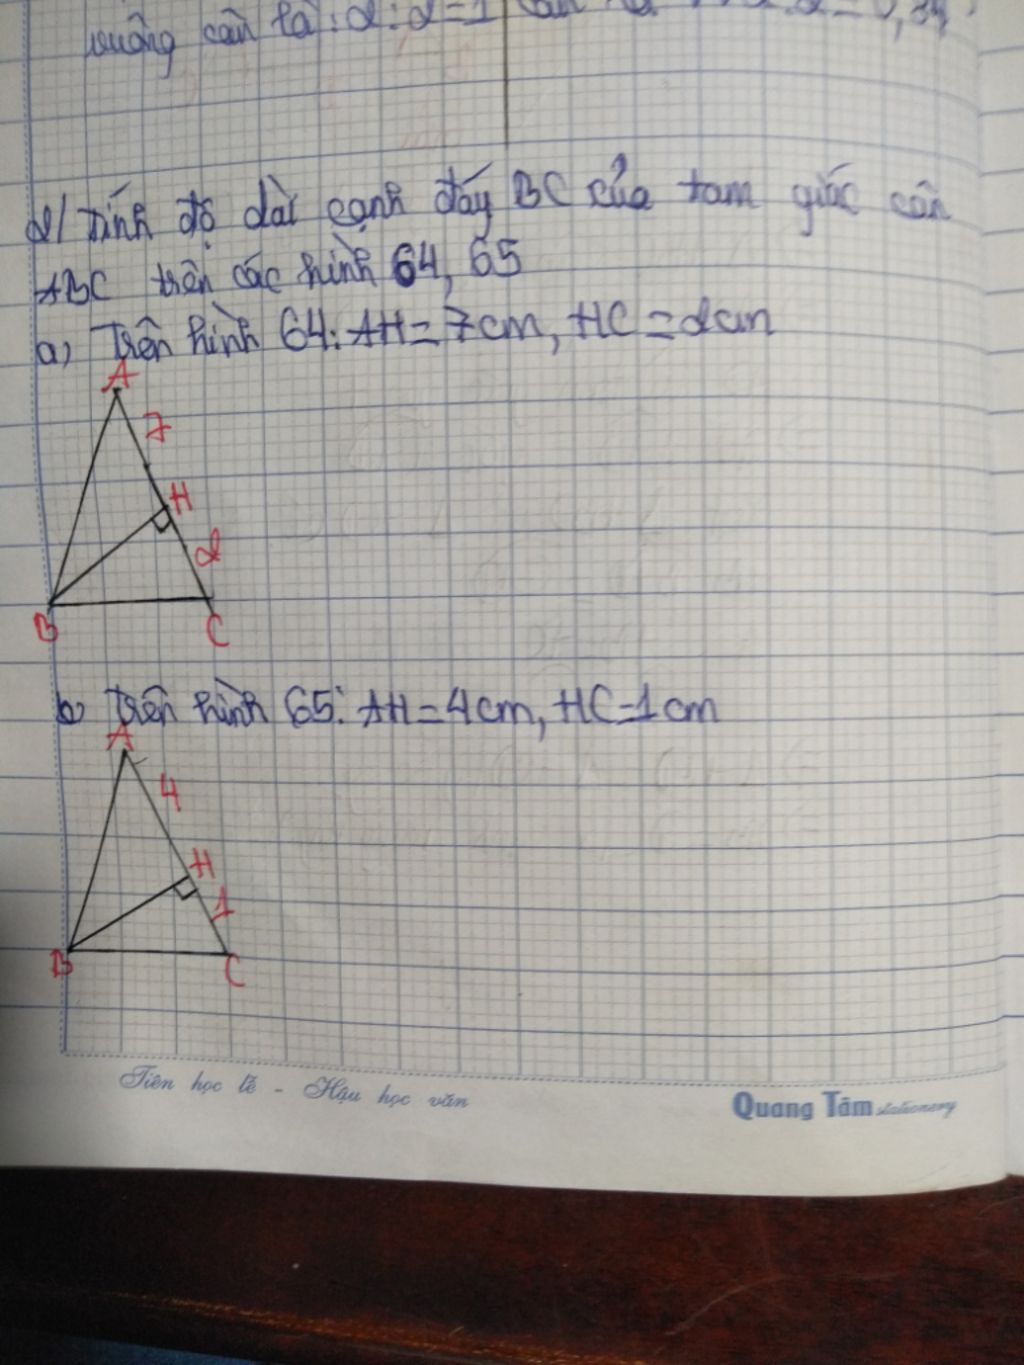 vuông cần là: 2:2=1
2/ Tính độ dài cạnh đáy BC của tam giác cân
ABC trên các hình 64, 65
a, Trên hình 64: AH=7cm, HC=2cm
A
7
H
2
B
C
b, Trên hình 65: AH=4cm, HC=1cm
A
4
H
1
B
C
Tiên học lễ - Hậu học văn
Quang Tâm stationery